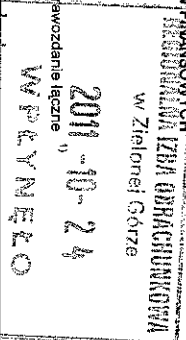 REGIONALNA IZBA OBRACHUNKOWA
w Zielonej Górze
2011 -10- 24
awozdanie łączne 1)
WPŁYNĘŁO